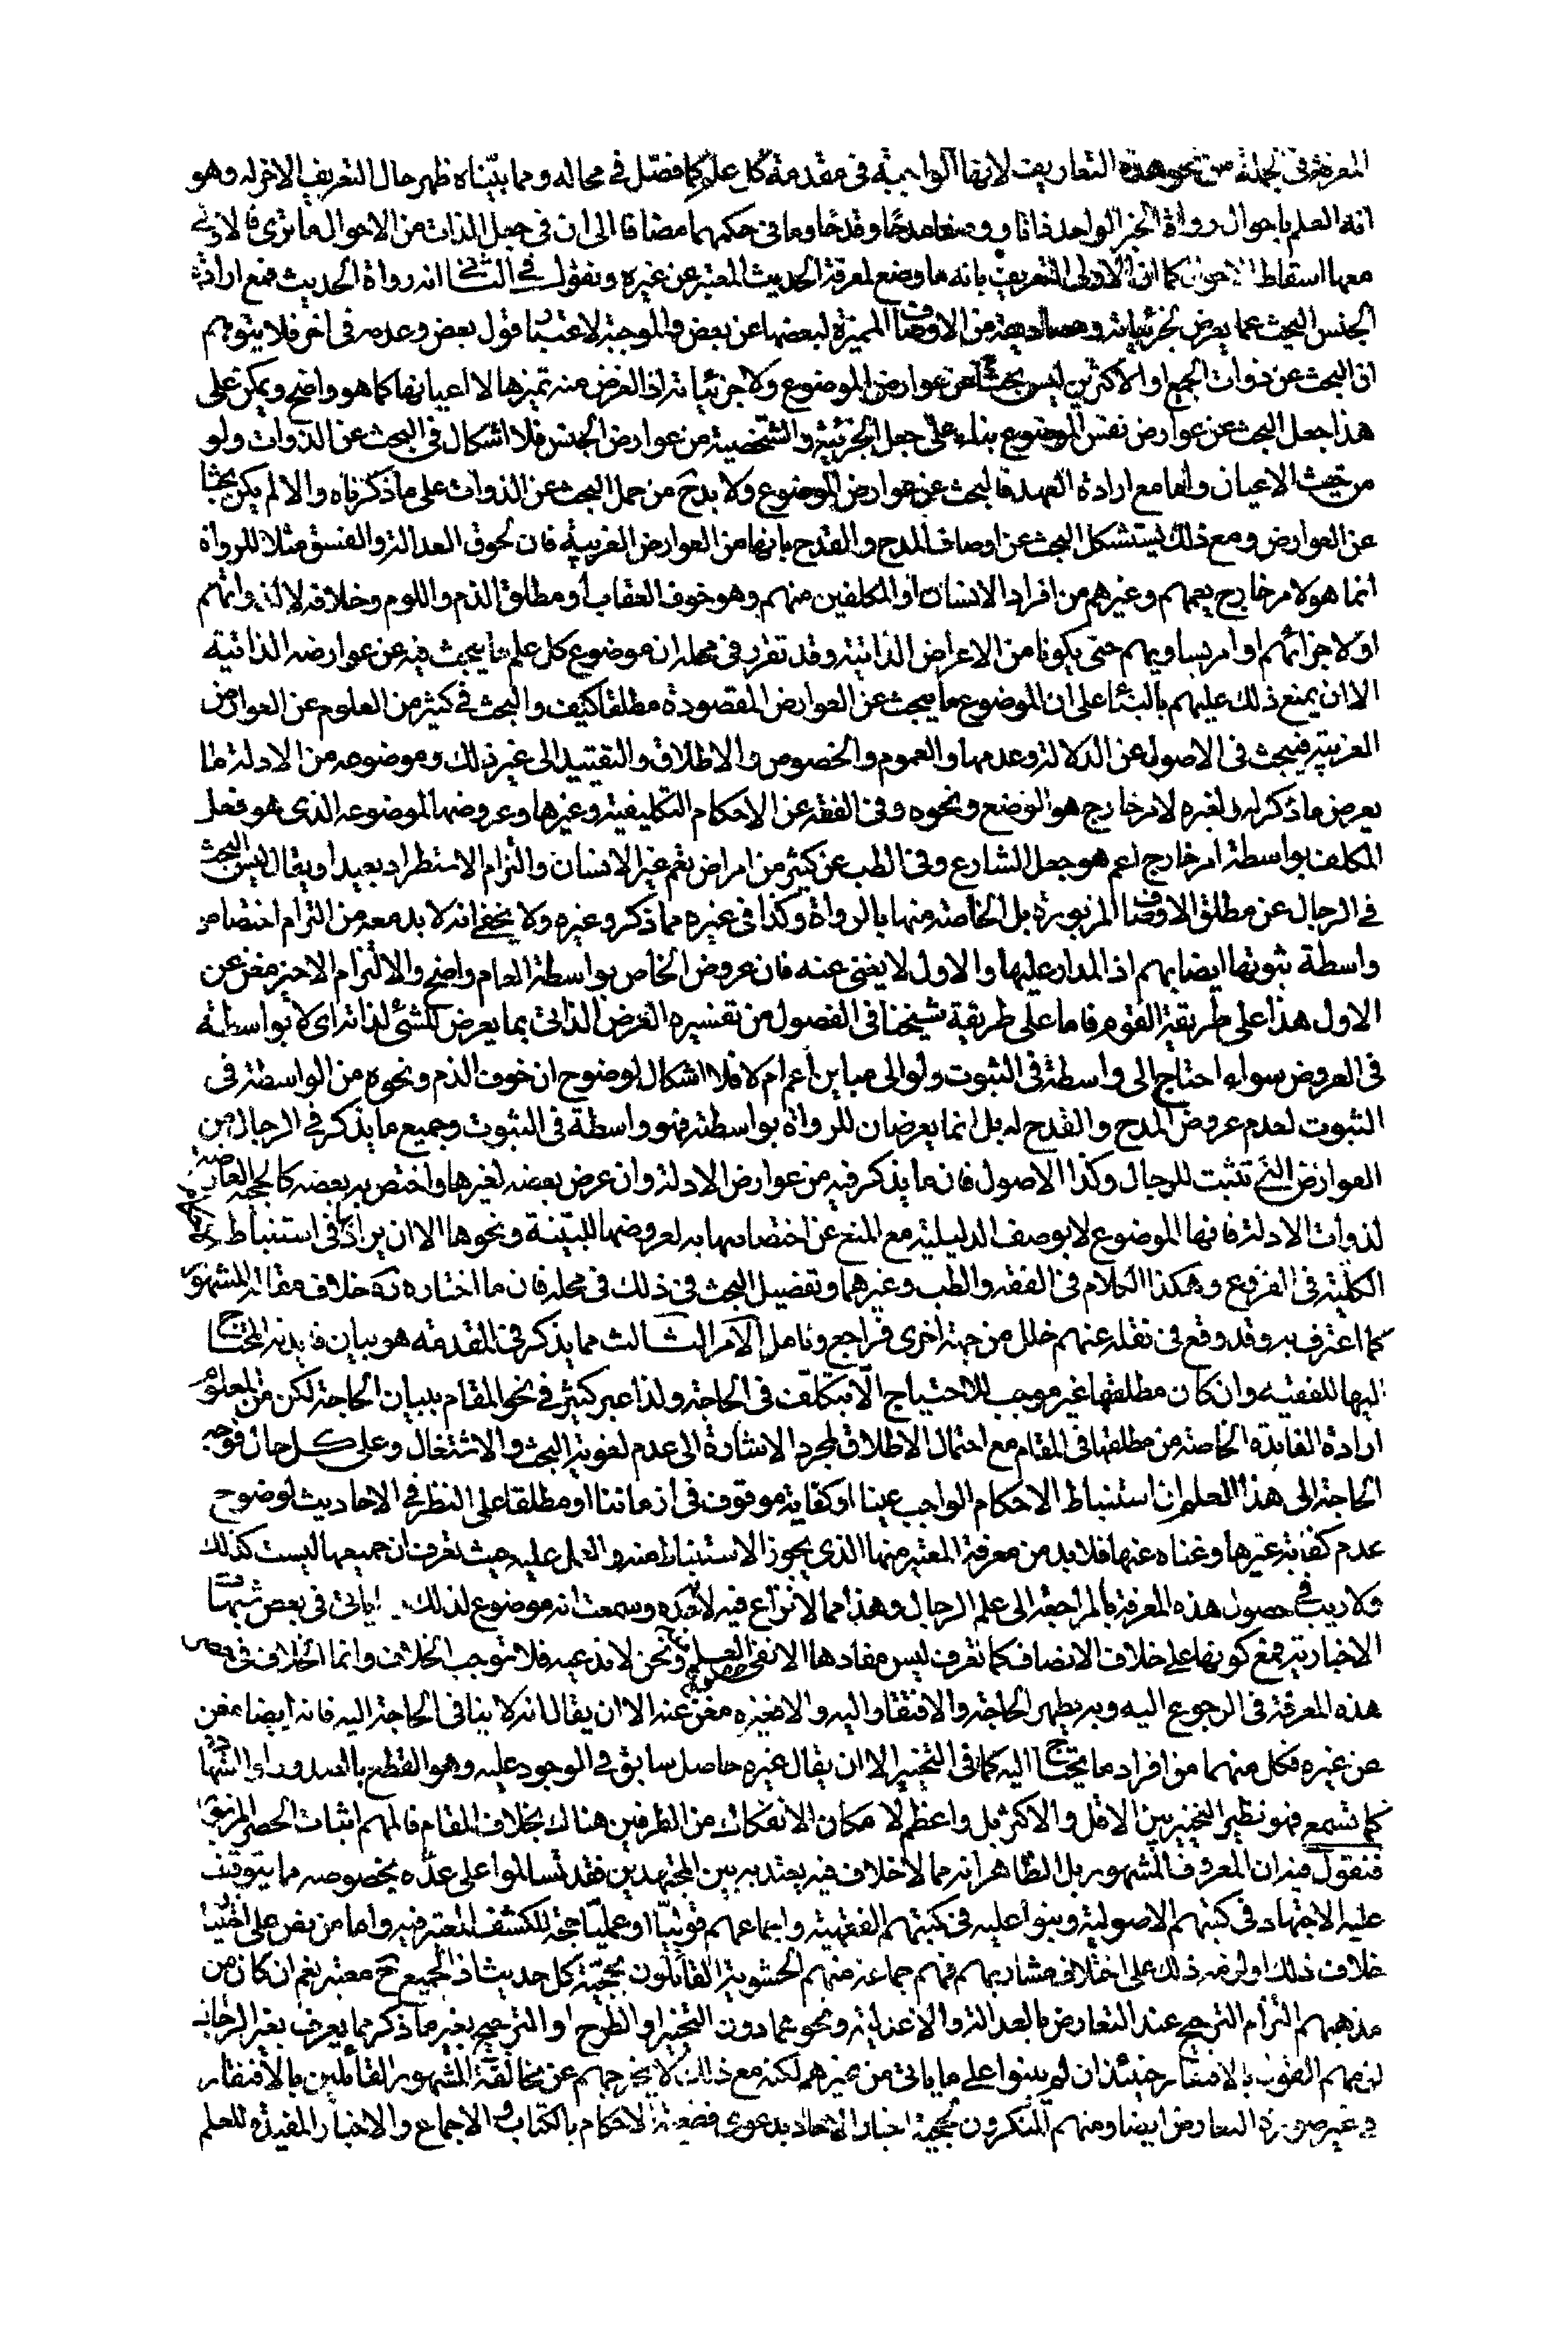 المعرفة في الجملة من نحو هذه التعاريف لانها الواجبة في مقدمة كل علم كما فصّل في محاله ومما بيّناه ظهر حال التعريف الاخر له وهو
انه العلم باحوال رواة الخبر الواحد ذاتا ووصفا مدحا وقدحا وما في حكمهما مضافا الى ان في جعل الذات من الاحوال ما ترى فالاولى
معها اسقاط الاحوال كما ان الاولى التعريف بانه ما وضع لمعرفة الحديث المعتبر عن غيره ونقول في الثاني انه رواة الحديث فمع ارادة
الجنس البحث عما يعرض لجزئياته ومصاديقه من الاوصاف المميزة لبعضها عن بعض والموجبة لاعتبار قول بعض وعدمه في اخر فلا يتوهم
ان البحث عن ذوات الجميع او الاكثرين ليس بحثا عن عوارض الموضوع ولا جزئياته اذ الغرض منه تميزها لا اعيانها كما هو واضح ويمكن على
هذا جعل البحث عن عوارض نفس الموضوع بناء على جعل الجزئية والشخصية من عوارض الجنس فلا اشكال في البحث عن الذوات ولو
من حيث الاعيان واما مع ارادة العهد فالبحث عن عوارض الموضوع ولا بد ح من حمل البحث عن الذوات على ما ذكرناه والا لم يكن بحثا
عن العوارض ومع ذلك يستشكل البحث عن اوصاف المدح والقدح بانها من العوارض الغريبة فان لحوق العدالة والفسق مثلا للرواة
انما هو لامر خارج يعمهم وغيرهم من افراد الانسان او المكلفين منهم وهو خوف العقاب او مطلق الذم واللوم وخلافه لا لذواتهم
او لاجزائهم او امر يساويهم حتى يكونا من الاعراض الذاتية وقد تقرر في محله ان موضوع كل علم ما يبحث فيه عن عوارضه الذاتية
الا ان يمنع ذلك عليهم بالبناء على ان الموضوع ما يبحث عن العوارض المقصودة مطلقا كيف والبحث في كثير من العلوم عن العوارض
الغريبة فيبحث في الاصول عن الدلالة وعدمها والعموم والخصوص والاطلاق والتقييد الى غير ذلك وموضوعه من الادلة مما
يعرض ما ذكر له ولغيره لامر خارج هو الوضع ونحوه وفي الفقه عن الاحكام التكليفية وغيرها وعروضها لموضوعه الذي هو فعل
المكلف بواسطة امر خارج اعم هو جعل الشارع وفي الطب عن كثير من امراض تعم غير الانسان والتزام الاستطراد بعيد او يقال ليس البحث
في الرجال عن مطلق الاوصاف المزبورة بل الخاصة منها بالرواة وكذا في غيره مما ذكر وغيره ولا يخفى انه لا بد معه من التزام اختصاص
واسطة ثبوتها ايضا بهم اذ المدار عليها والاول لا يغني عنه فان عروض الخاص بواسطة العام واضح والالتزام الاخير مغن عن
الاول هذا على طريقة القوم فاما على طريقة شيخنا في الفصول من تفسيره العرض الذاتي بما يعرض للشئ لذاته اي لا بواسطة
في العروض سواء احتاج الى واسطة في الثبوت ولو الى مباين اعم ام لا فلا اشكال لوضوح ان خوف الذم ونحوه من الواسطة في
الثبوت لعدم عروض المدح والقدح له بل انما يعرضان للرواة بواسطته فهو واسطة في الثبوت وجميع ما يذكر في الرجال من
العوارض التي تثبت للرجال وكذا الاصول فان ما يذكر فيه من عوارض الادلة وان عرض بعضه لغيرها واختص به بعضه كالحجية العارضة
لذوات الادلة فانها الموضوع لا بوصف الدليلية مع المنع عن اختصاصها به لعروضها للبينة ونحوها الا ان يراد كما في استنباط الاحكام
الكلية في الفروع وهكذا الكلام في الفقه والطب وغيرهما وتفصيل البحث في ذلك في محله فان ما اختاره ره خلاف مقالة المشهور
كما اعترف به وقد وقع في نقله عنهم خلل من جهة اخرى فراجع وتامل الامر الثالث مما يذكر في المقدمة هو بيان فايدته المحتاج
اليها للفقيه وان كان مطلقها غير موجب للاحتياج الا بتكلف في الحاجة ولذا عبر كثير في نحو المقام ببيان الحاجة لكن من المعلوم
ارادة الفايدة الخاصة من مطلقها في المقام مع احتمال الاطلاق لمجرد الاشارة الى عدم لغوية البحث والاشتغال وعلى كل حال فوجه
الحاجة الى هذا العلم ان استنباط الاحكام الواجب عينا او كفاية موقوف في ازماننا او مطلقا على النظر في الاحاديث لوضوح
عدم كفاية غيرها وغناه عنها فلا بد من معرفة المعتبر منها الذي يجوز الاستنباط منه والعمل عليه حيث نعرف ان جميعها ليست كذلك
ولا ريب في حصول هذه المعرفة بالمراجعة الى علم الرجال وهذا مما لا نزاع فيه لاحد وسمعت انه موضوع لذلك وما ياتي في بعض شبهات
الاخبارية فمع كونها على خلاف الانصاف كما تعرف ليس مفادها الا نفي حصول العلم ونحن لا ندعيه فلا توجب الخلاف وانما الخلاف في حصر
هذه المعرفة في الرجوع اليه وبه يظهر الحاجة والافتقار اليه والا فغيره مغن عنه الا ان يقال انه لا ينافي الحاجة اليه فانه ايضا مغن
عن غيره فكل منهما من افراد ما يحتاج اليه كما في التخيير الا ان يقال غيره حاصل سابق في الوجود عليه وهو القطع بالصدور او الشهادة
كما تسمع فهو نظير التخيير بين الاقل والاكثر بل واعظم لامكان الانفكاك من الطرفين هناك بخلاف المقام فالمهم اثبات الحصر المزبور
فنقول فيه ان المعروف المشهور بل الظاهر انه مما لا خلاف فيه يعتد به بين المجتهدين فقد تسالموا على عدّه بخصوصه مما يتوقف
عليه الاجتهاد في كتبهم الاصولية وبنوا عليه في كتبهم الفقهية واجماعهم قوليا او عمليا حجة للكشف المعتبر فيه واما من نص على اختيار
خلاف ذلك او لزمه ذلك على اختلاف مشاربهم فهم جماعة منهم الحشوية القائلون بحجية كل حديث اذ الجميع ح معتبر نعم ان كان من
مذهبهم التزام الترجيح عند التعارض بالعدالة والاعدلية ونحوهما دون التخيير او الطرح او الترجيح بغير ما ذكر مما يعرف بغير الرجال
لزمهم القول بالافتقار حينئذ ان لم يبنوا على ما ياتي من غيرهم لكنه مع ذلك لا يخرجهم عن مخالفة المشهور القائلين بالافتقار
في غير صورة التعارض ايضا ومنهم المنكرون لحجية اخبار الاحاد بدعوى قطعية الاحكام بالكتاب والاجماع والاخبار المفيدة للعلم